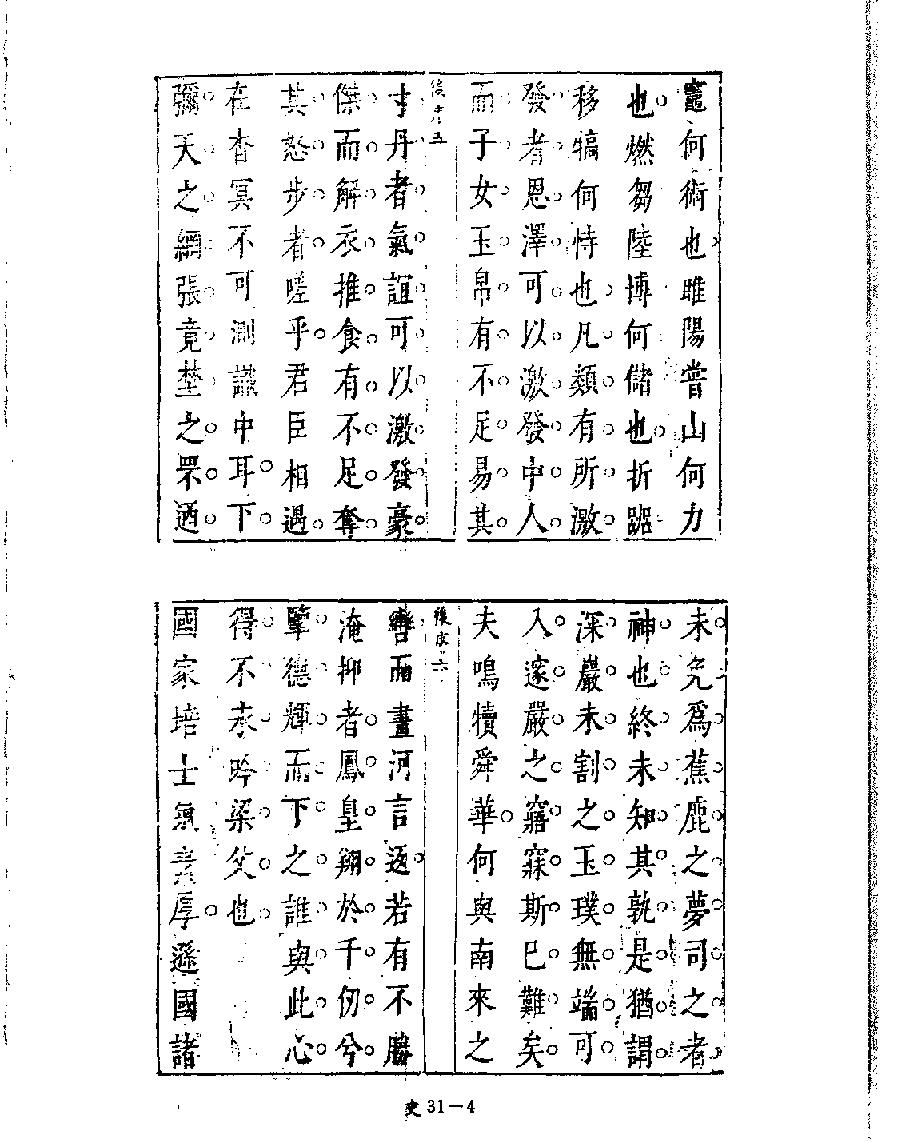 竈何術也睢陽嘗山何力
也燃芻陸博何儲也折踞
移犒何恃也凡類有所激
發者恩澤可以激發中人
而子女玉帛有不足易其
後序五
寸丹者氣誼可以激發豪
傑而解衣推食有不足奪
其怒步者嗟乎君臣相遇
在杳冥不可測識中耳下
彌天之網張竟壄之罘迺
未免爲蕉鹿之夢司之者
神也終未知其孰是猶謂
深巖未割之玉璞無端可
入邃嚴之寤寐斯已難矣
夫鳴犢舜華何與南來之
後序六
轡而畫河言返若有不勝
淹抑者鳳皇翔於千仞兮
擥德輝而下之誰與此心
得不永吟梁父也
國家培士氣素厚遜國諸
史31－4